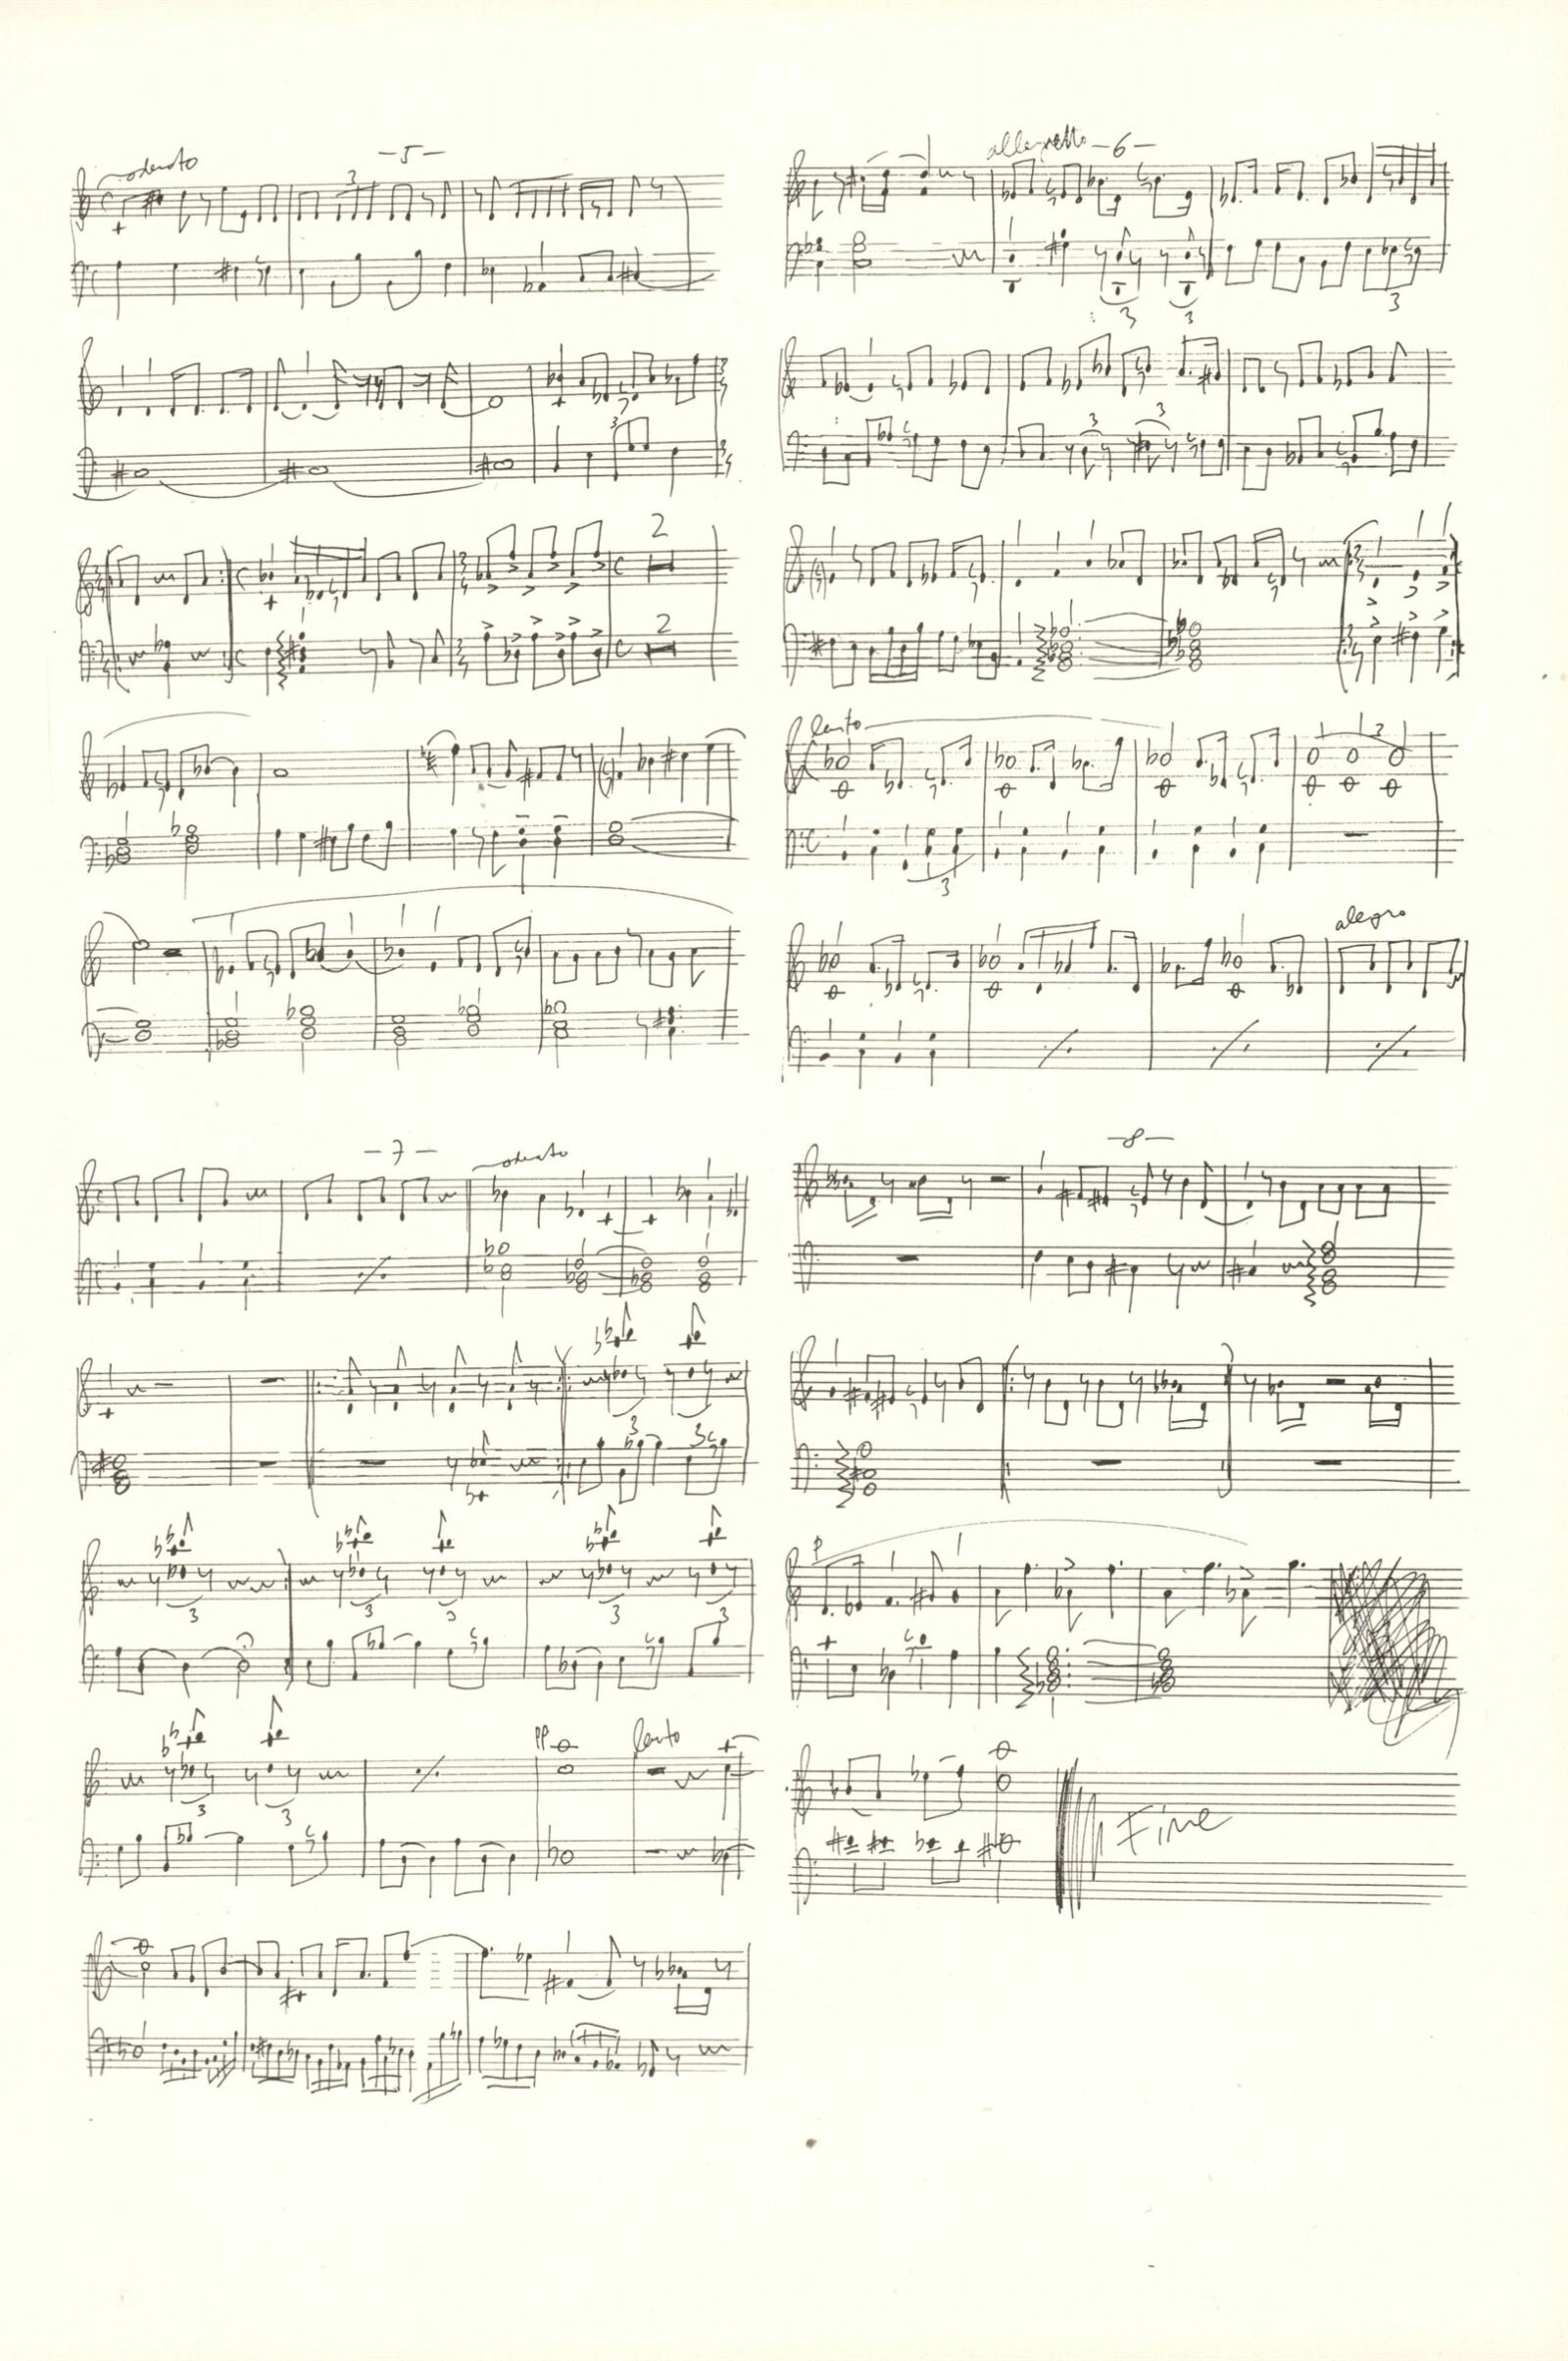 moderato
-5-
3
3
2
2
allegretto -6-
3
3
3
3
3
lento
3
3
alegro
-7-
moderato
3
3
3
3
3
3
3
3
pp
lento
-8-
p
Fine